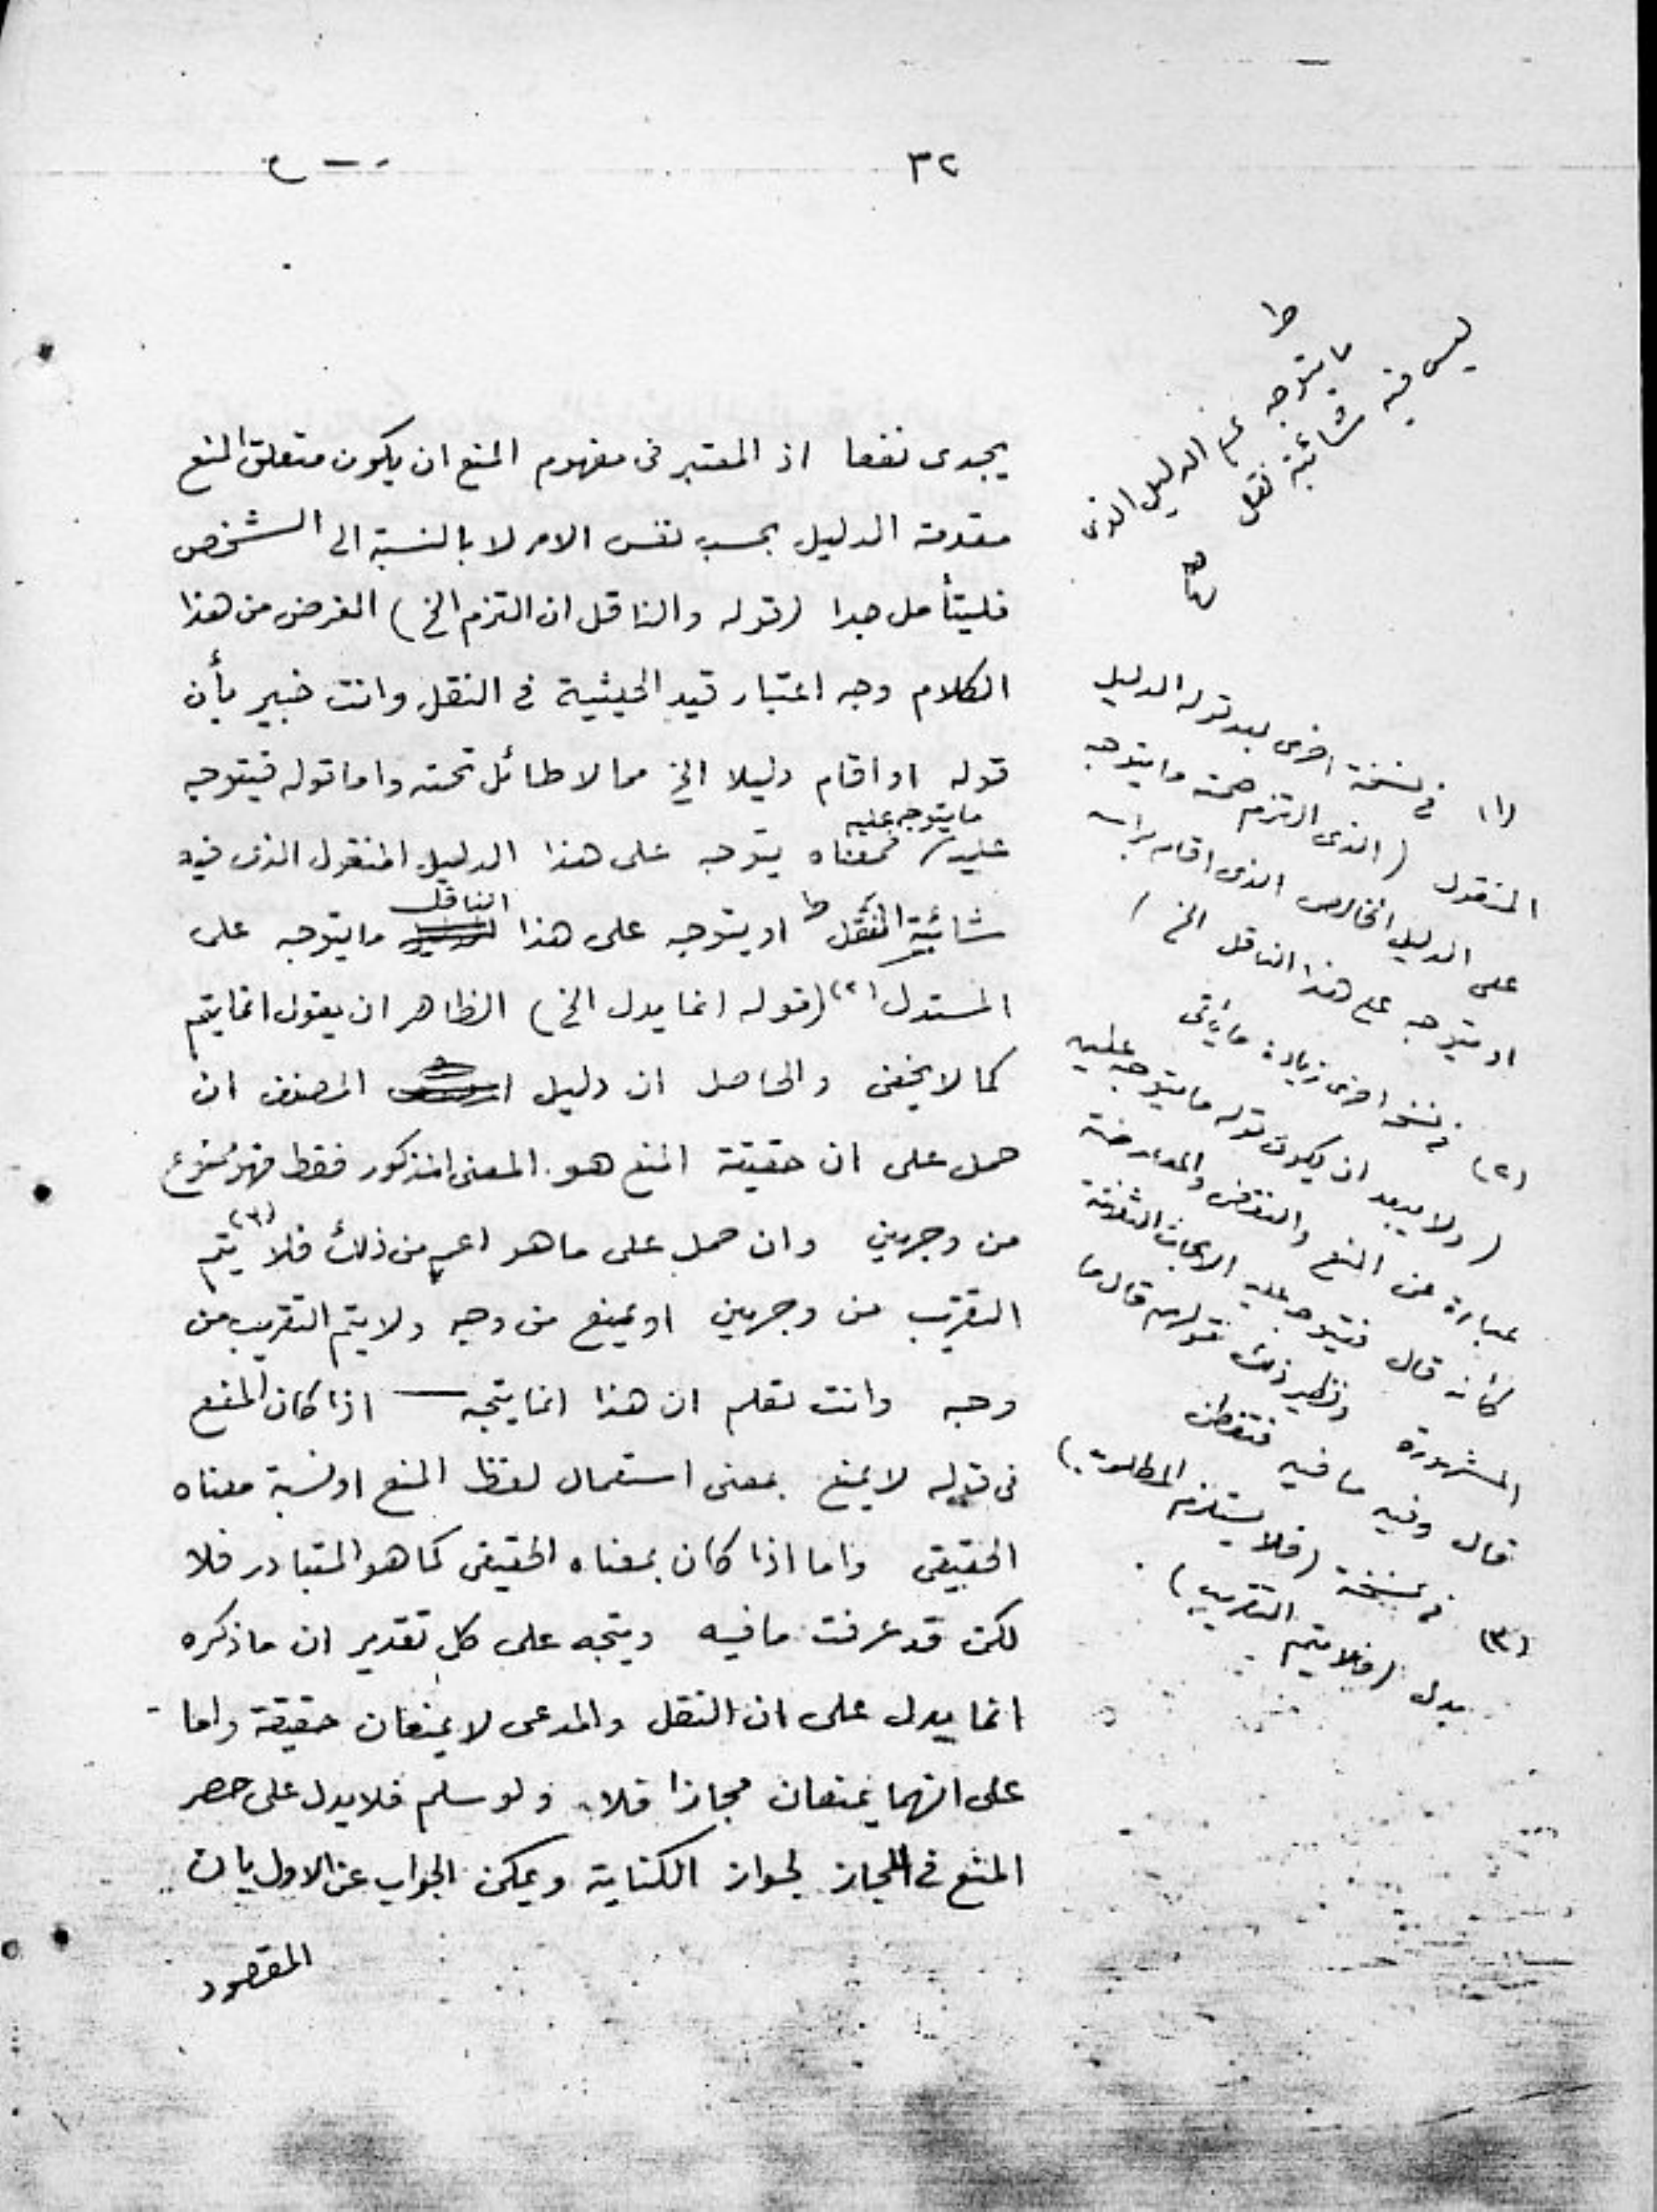 ٣٢
يجدى نفعا اذ المعتبر فى مفهوم المنع ان يكون متعلق المنع
مقدمة الدليل بحسب نفس الامر لا بالنسبة الى الشخص
فليتأمل جدا (قوله والناقل ان التزم الخ) الغرض من هذا
الكلام وجه اعتبار قيد الحيثية فى النقل وانت خبير بأن
قوله او اقام دليلا الخ مما لا طائل تحته واما قوله فيتوجه
ما يتوجه عليه
عليه فمعناه يتوجه على هذا الدليل المنقول الذى فيه
الناقل
شائبة النقل ط او يتوجه على هذا ما يتوجه على
المستدل (٢) (قوله انما يدل الخ) الظاهر ان يقول انما يتم
كما لا يخفى والحاصل ان دليل المصنف ان
حمل على ان حقيقة المنع هو المعنى المذكور فقط فهو ممنوع
من وجهين وان حمل على ما هو اعم من ذلك فلا (٣) يتم
التقريب من وجهين او يمنع من وجه ولا يتم التقريب من
وجه وانت تعلم ان هذا انما يتجه اذا كان المنع
فى قوله لا يمنع بمعنى استعمال لفظ المنع او نسبة معناه
الحقيقى واما اذا كان بمعناه الحقيقى كما هو المتبادر فلا
لكن قد عرفت ما فيه ويتجه على كل تقدير ان ما ذكره
انما يدل على ان النقل والمدعى لا يمنعان حقيقة واما
على انهما يمنعان مجازا فلا ولو سلم فلا يدل على حصر
المنع فى المجاز لجواز الكناية ويمكن الجواب عن الاول بان
المقصود
ط
ما يتوجه على الدليل الذى
ليس فيه شائبة نقل
(١) فى نسخة اخرى بعد قوله الدليل
المنقول (الذى التزم صحته ما يتوجه
على الدليل الخالص الذى اقامه برأسه
او يتوجه على هذا الناقل الخ)
(٢) فى نسخة اخرى زيادة ما يأتى
(ولا يبعد ان يكون قوله ما يتوجه عليه
عبارة عن المنع والنقض والمعارضة
كأنه قال فيتوجه عليه الابحاث الثلاثة
المشهورة ونظير ذلك قولهم قال ما
قال وفيه ما فيه فتفطن
(٣) فى نسخة (فلا يستلزم المطلوب)
بدل (فلا يتم التقريب)